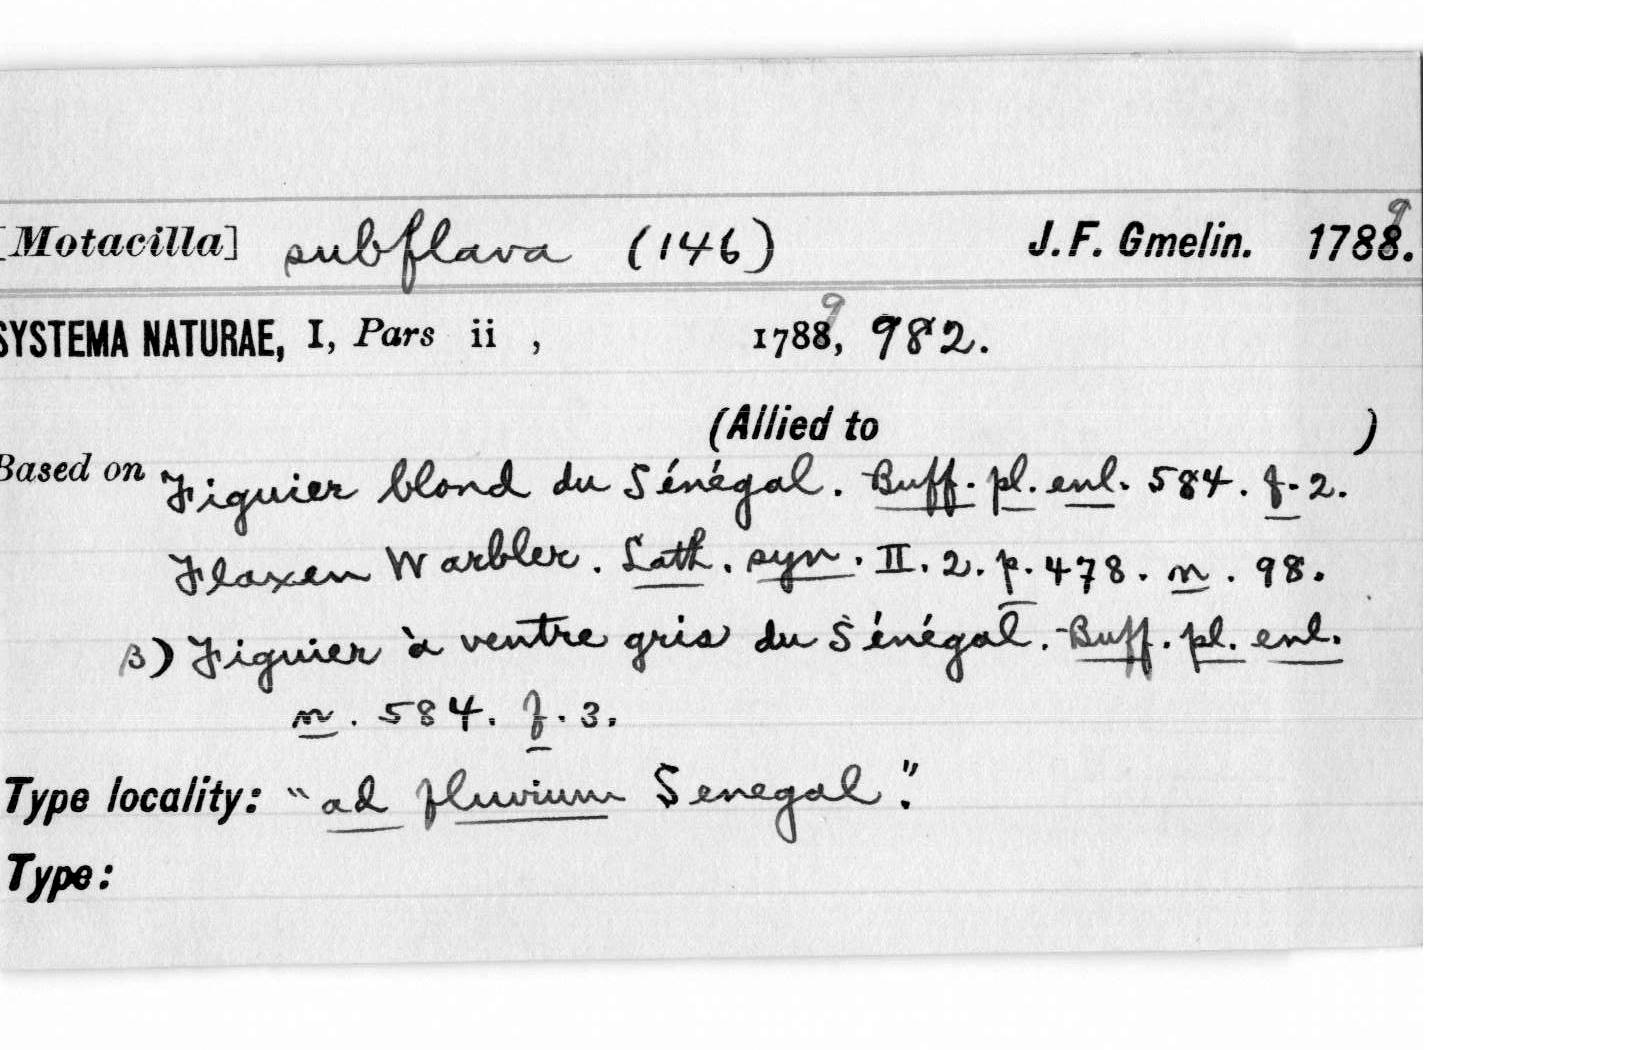 [Motacilla] subflava (146) J. F. Gmelin. 1788. 9
SYSTEMA NATURAE, I, Pars ii , 1788, 9 982.
(Allied to )
Based on Figuier blond du Sénégal. Buff. pl. enl. 584. f. 2.
Flaxen Warbler. Lath. syn. II. 2. p. 478. n. 98.
β) Figuier à ventre gris du Sénégal. Buff. pl. enl.
n. 584. f. 3.
Type locality: "ad fluvium Senegal".
Type: